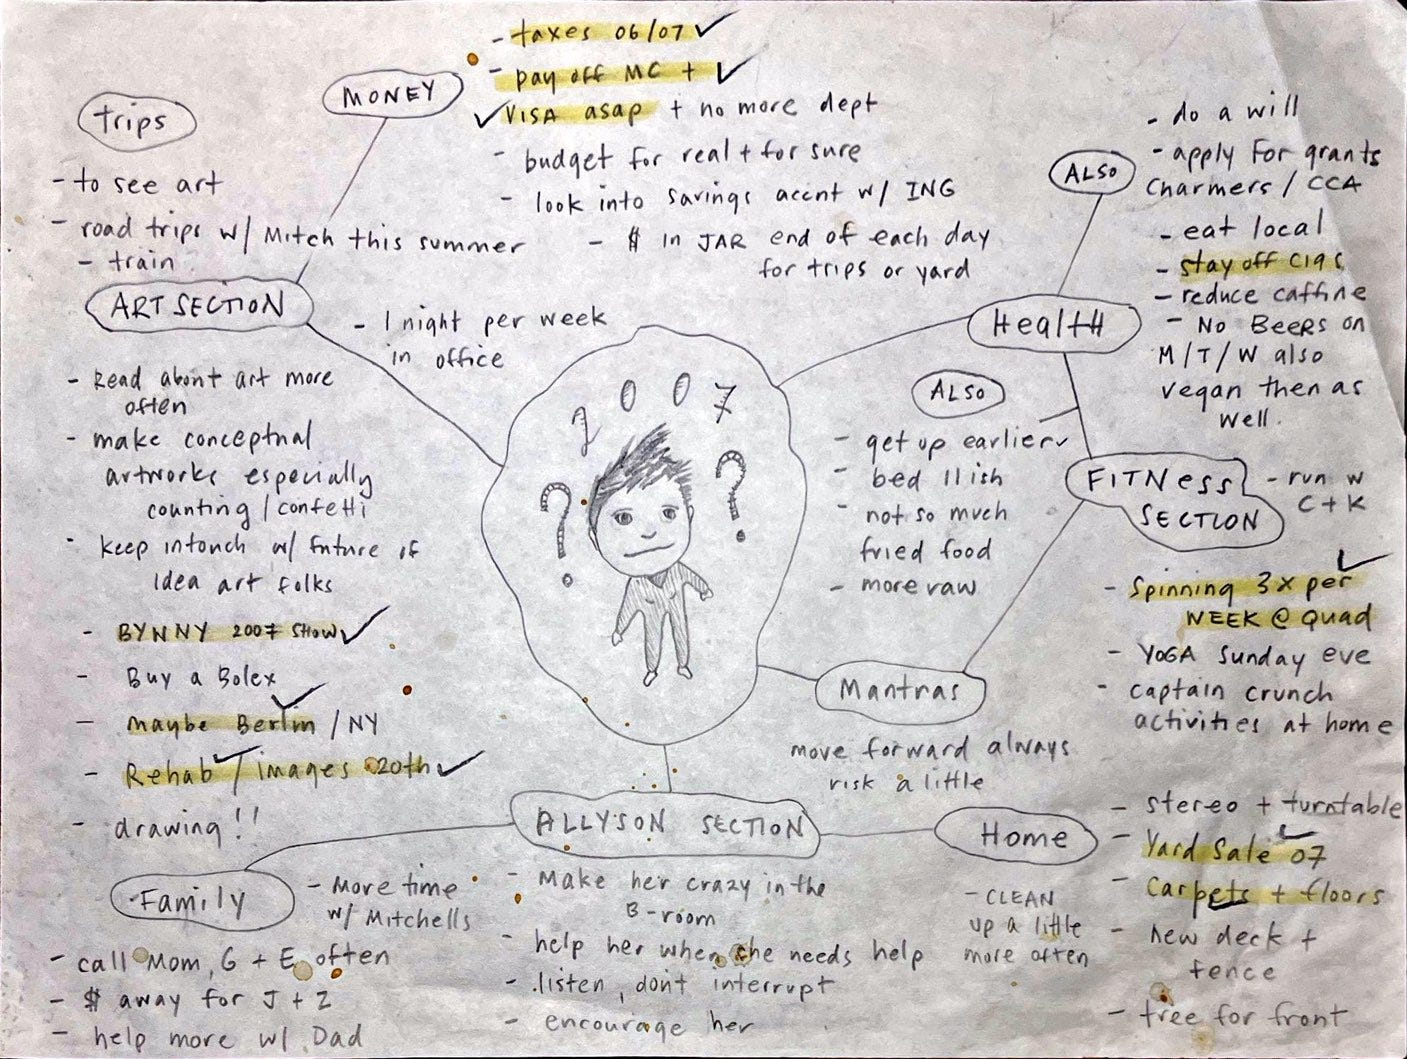 trips
- to see art
- road trips w/ Mitch this summer
- train
MONEY
- taxes 06/07
- pay off MC +
VISA asap + no more dept
- budget for real + for sure
- look into savings accnt w/ ING
- $ in JAR end of each day
for trips or yard
ART SECTION
- 1 night per week
in office
- Read about art more
often
- make conceptual
artworks especially
counting / confetti
- keep intouch w/ future of
idea art folks
- BYNNY 2007 SHOW
- Buy a Bolex
- maybe Berlin / NY
- Rehab / images 20th
- drawing!!
2007
? ?
ALSO
- do a will
- apply for grants
Charmers / CCA
- eat local
- stay off cigs
- reduce caffine
- No BeeRs on
M/T/W also
vegan then as
well.
Health
ALSO
- get up earlier
- bed 11 ish
- not so much
fried food
- more raw
FITNess
SECTION
- run w
C + K
- Spinning 3x per
WEEK @ Quad
- YOGA Sunday eve
- captain crunch
activities at home
Mantras
move forward always
risk a little
ALLYSON SECTION
- Make her crazy in the
B-room
- help her when she needs help
- listen, dont interrupt
- encourage her
Home
- CLEAN
up a little
more often
- stereo + turntable
- Yard Sale 07
- Carpets + floors
- new deck +
fence
- tree for front
Family
- More time
w/ Mitchells
- call Mom, G + E often
- $ away for J + Z
- help more w/ Dad